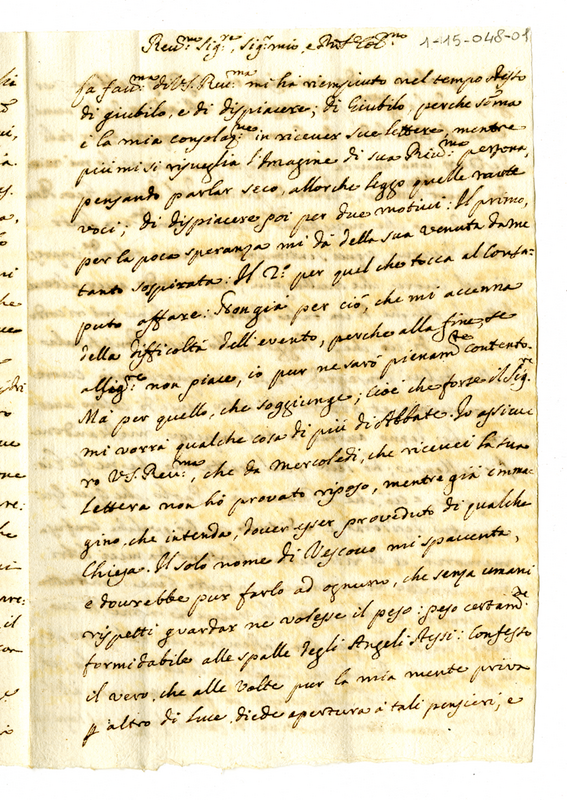 1-15-048-01
Reu.mo Sig.re, Sig.r mio e
La fau.ma di V.S. Reu.ma mi hà riempiuto nel tempo stesso
di giubilo, e di dispiacere; di Giubilo, perche som̃a
è la mia consolaz.ne in riceuer sue lettere, mentre
più mi si risueglia l'Imagine di sua Reu.ma persona,
pensando parlar seco, allorche leggo quelle
voci; di dispiacere poi per due motiui: Il primo,
per la poca speranza mi dà della sua venuta da me
tanto sospirata: Il 2.o per quel che tocca al Consa-
puto affare: Non già per ciò, che mi accenna
della difficoltà dell'euento, perche alla fine, se
al Sig.re non piace, io pur ne sarò pienam.te contento.
Mà per quello, che soggiunge; Cioè che forse il Sig.re
mi vorrà qualche cosa di più di Abbate. Io assicu-
ro V.S. Reu.ma, che da Mercoledì, che riceuei la sua
lettera non hò prouato riposo, mentre già imma-
gino, che intenda, douer esser proueduto di qualche
Chiesa. Il solo nome di Vescouo mi spauenta,
e dourebbe pur farlo ad ognuno, che senza umani
rispetti guardar ne volesse il peso: peso certam.te
formidabile alle spalle degli Angeli stessi: Confesso
il vero, che alle volte pur la mia mente priua
p altro di luce diede apertura à tali pensieri, e